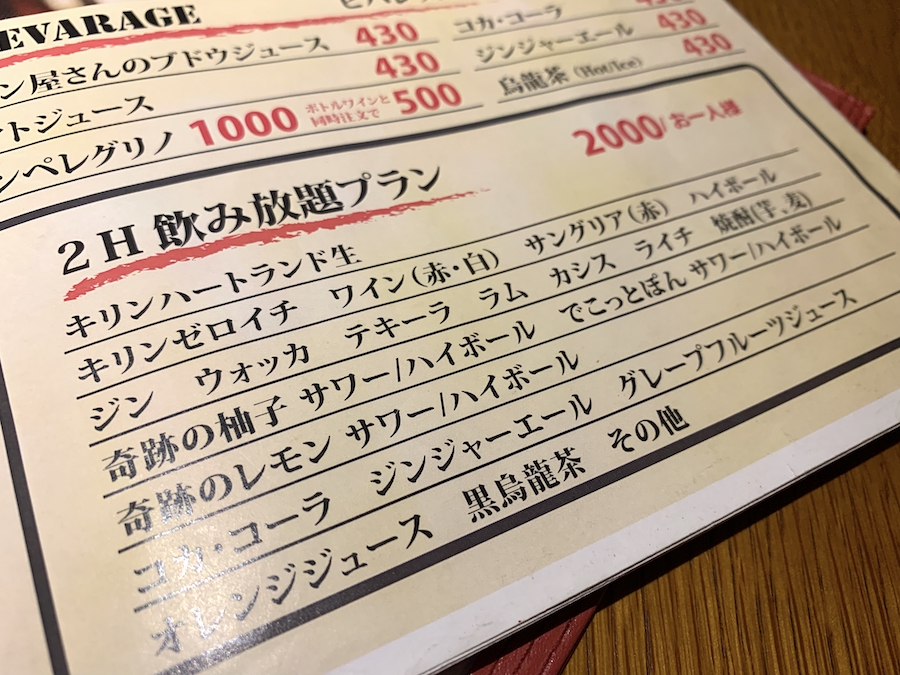 EVARAGE
ン屋さんのブドウジュース 430
コカ・コーラ
トジュース 430
ジンジャーエール 430
ンペレグリノ 1000 ボトルワインと同時注文で 500
烏龍茶 (Hot/Ice) 430
2H 飲み放題プラン 2000/お一人様
キリンハートランド生
キリンゼロイチ ワイン(赤・白) サングリア(赤) ハイボール
ジン ウォッカ テキーラ ラム カシス ライチ 焼酎(芋、麦)
奇跡の柚子 サワー/ハイボール でこっとぽん サワー/ハイボール
奇跡のレモン サワー/ハイボール
コカ・コーラ ジンジャーエール グレープフルーツジュース
オレンジジュース 黒烏龍茶 その他